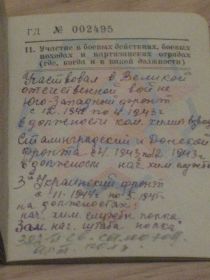 ГЛ № 002495
11. Участие в боевых действиях, боевых
походах и партизанских отрядах
(где, когда и в какой должности)
Участвовал в Великой
отечественной войне
Юго-Западный фронт
с 12. по 4. 1943 г
в должности ком. хим. взвода
Сталинградский и Донской
фронта с 4. 1943 по 12. 1943 г
в должности нач. хим. службы
3й Украинский фронт
по 5. 1945 г
на должностях:
нач. хим. службы полка
Зам. нач. штаба полка
арт. полк